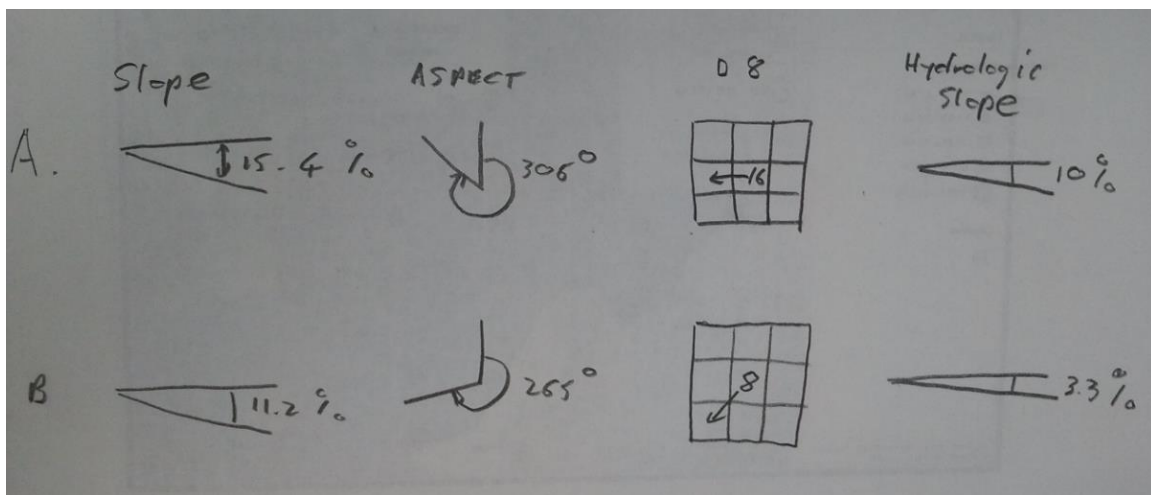 Slope ASPECT D8 Hydrologic Slope
A. 15.4 % 306° 16 10%
B 11.2 % 265° 8 3.3%